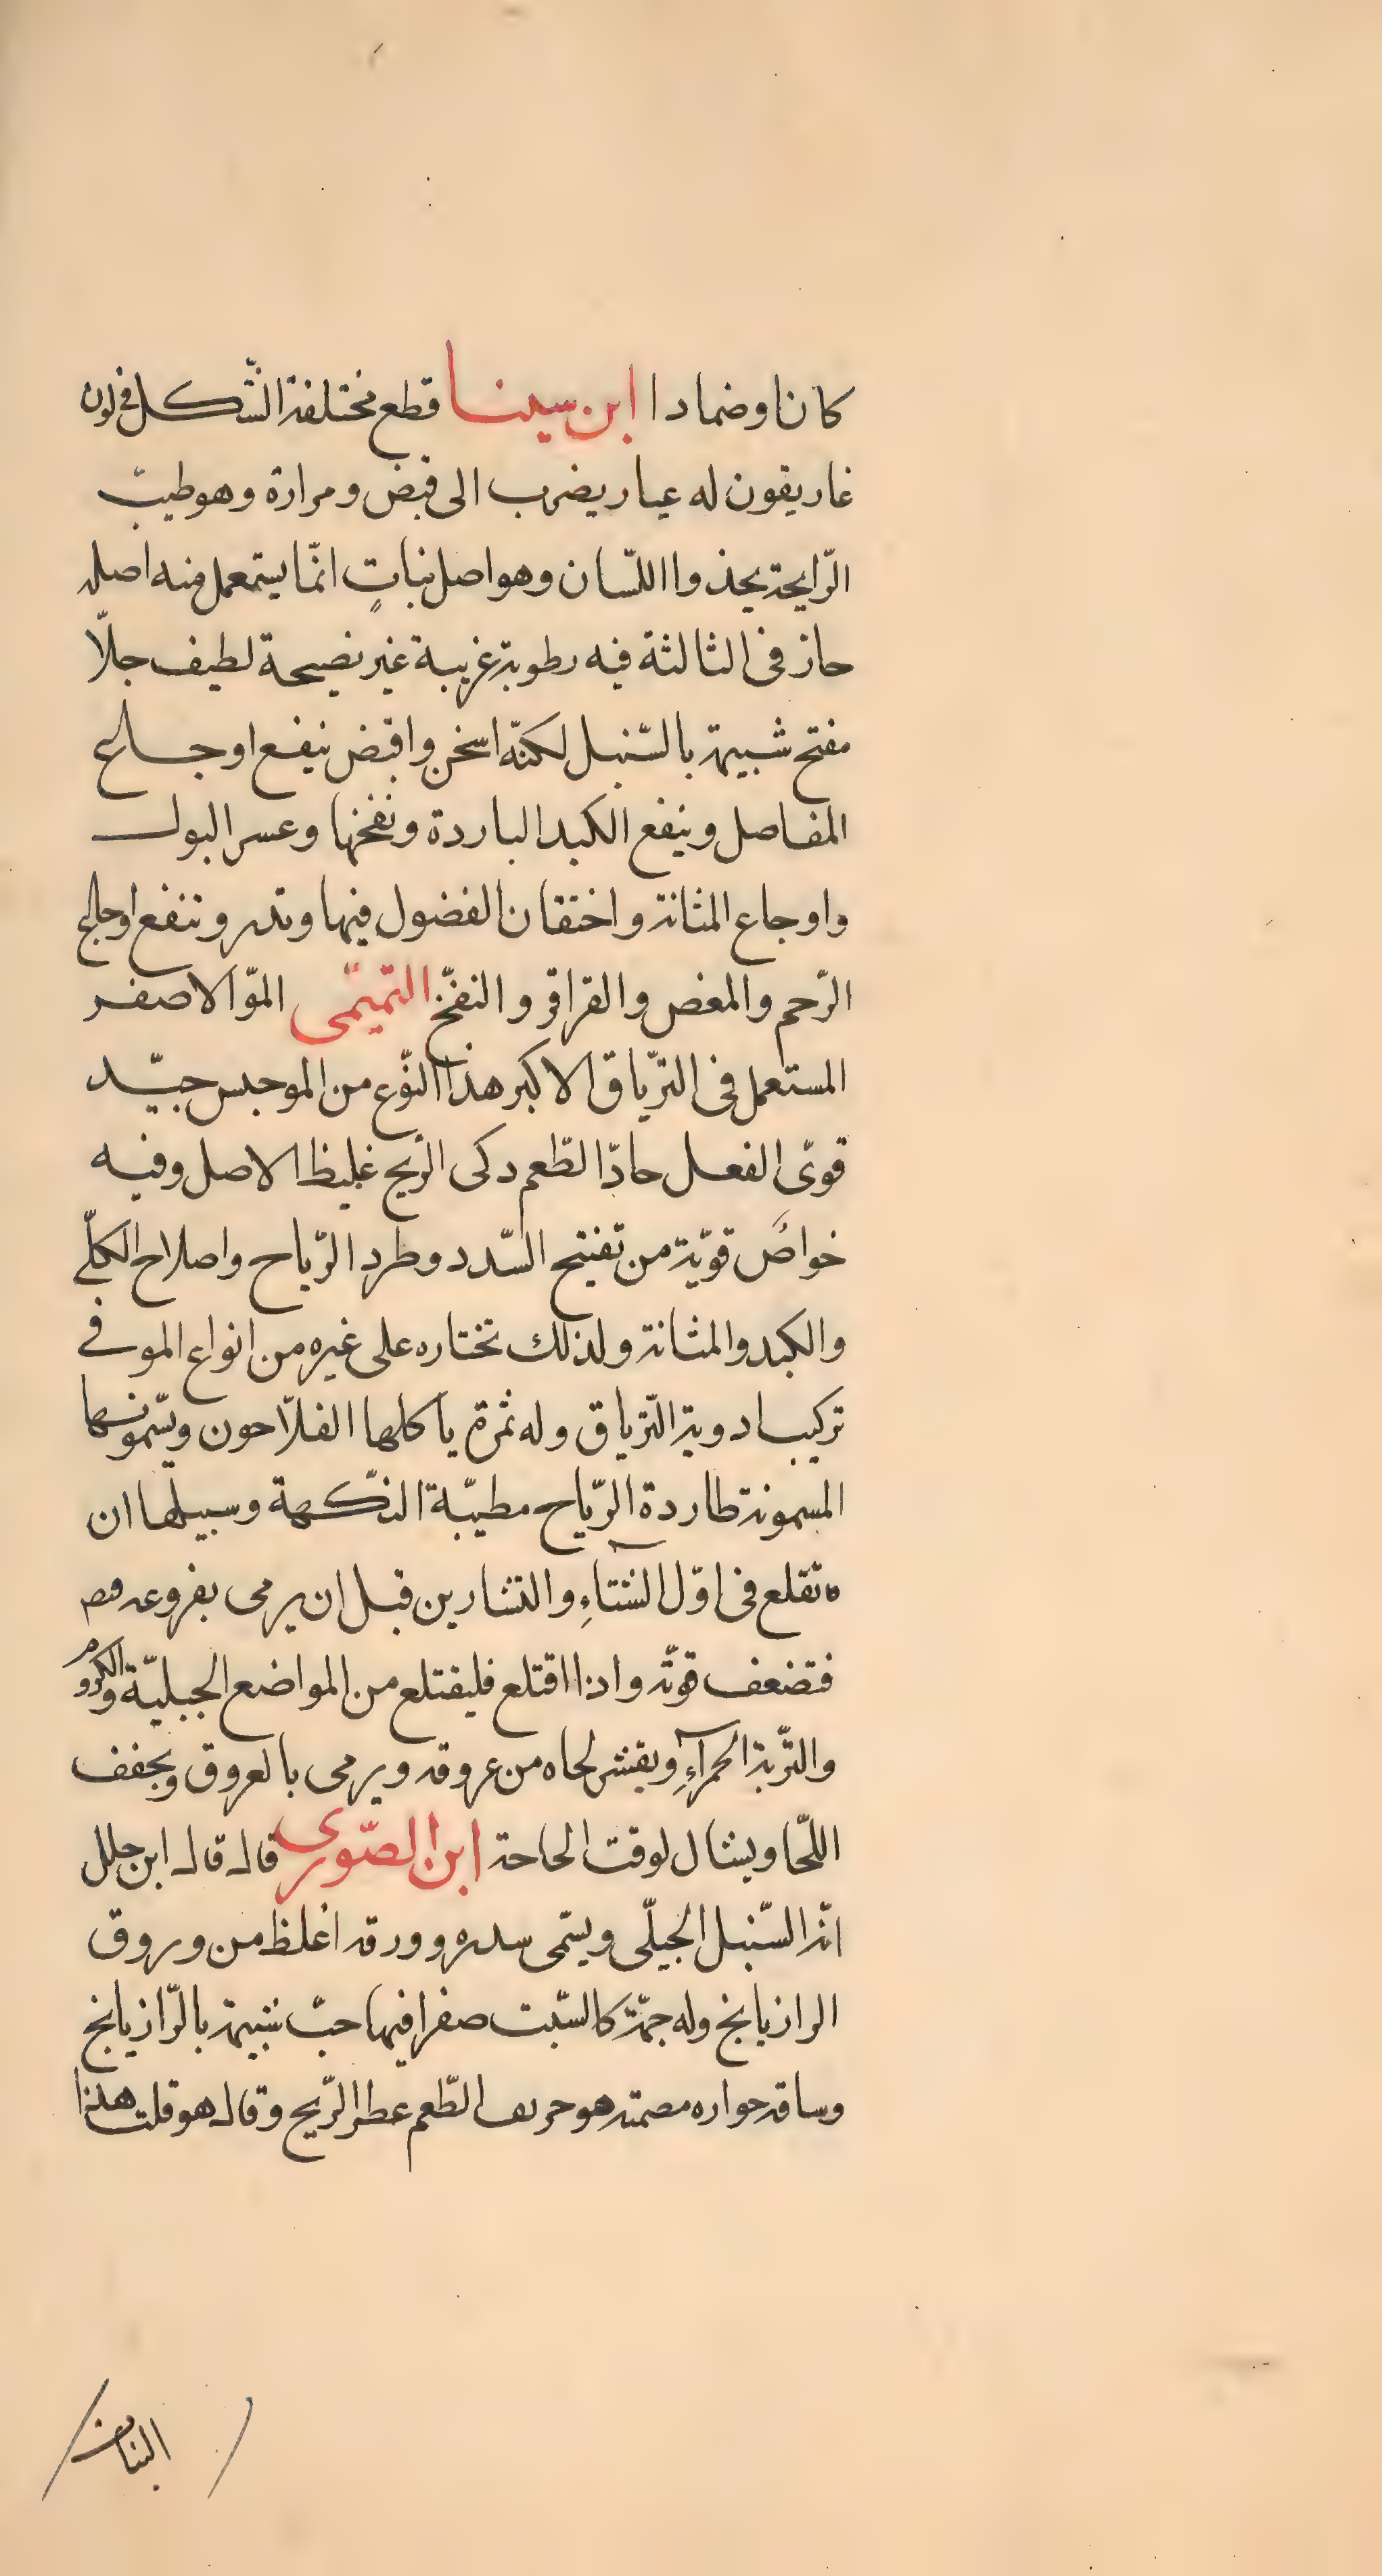 كانا وضمادا ابن سينا قطع مختلفة الشّكل فى لون
غاريقون له عيار يضرب الى قبض ومرارة وهو طيب
الرّايحة يحذوا اللّسان وهو اصل نباتٍ انّما يستعمل منه اصله
حار فى الثالثة فيه رطوبة غريبة غير نضيجة لطيف جلّا
مفتح شبيهة بالسّنبل لكنّه اسخن واقبض ينفع اوجاع
المفاصل وينفع الكبد الباردة ونفخها وعسر البول
واوجاع المثانة واختقان الفضول فيها وتدر وتنفع اوجاع
الرّحم والمغص والقراقر والنفخ التّميّمى الموّ الاصفر
المستعمل فى التّرياق الاكبر هذا النّوع من المو جبس جيّد
قوىّ الفعل حادّ الطّعم دكى الرّيح غليظ الاصل وفيه
خواصٌ قويّة من تفتيح السّدد وطرد الرّياح واصلاح الكلّى
والكبد والمثانة ولذلك تختاره على غيره من انواع المو فى
تركيب ادوية التّرياق وله ثمرة ياكلها الفلّاحون ويسّمونها
المسمونة طاردة الرّياح مطيّبة النّكهة وسبيلها ان
تقلع فى اوّل الشتاءِ والتشارين قبل ان يرمى بفروعه
فتضعف قوتّه واذا اقتلع فليقتلع من المواضع الجبليّة والكروم
والتّربة الحمرآءِ ويقشر لحاه من عروقه ويرمى بالعروق ويجفف
اللّحا ويشال لوقت الحاجة ابن الصّورى قال قال ابن جلجل
انّه السّنبل الجبلّى ويسّمى سدره وورقه اغلظ من وروق
الرازيانج وله جمّة كالسّبت صفرا فيها حبّ شبيهة بالرّازيانج
وساقه حواره مصمته هو حريف الطّعم عطر الرّيح وقال هو قلت هذا
النبات